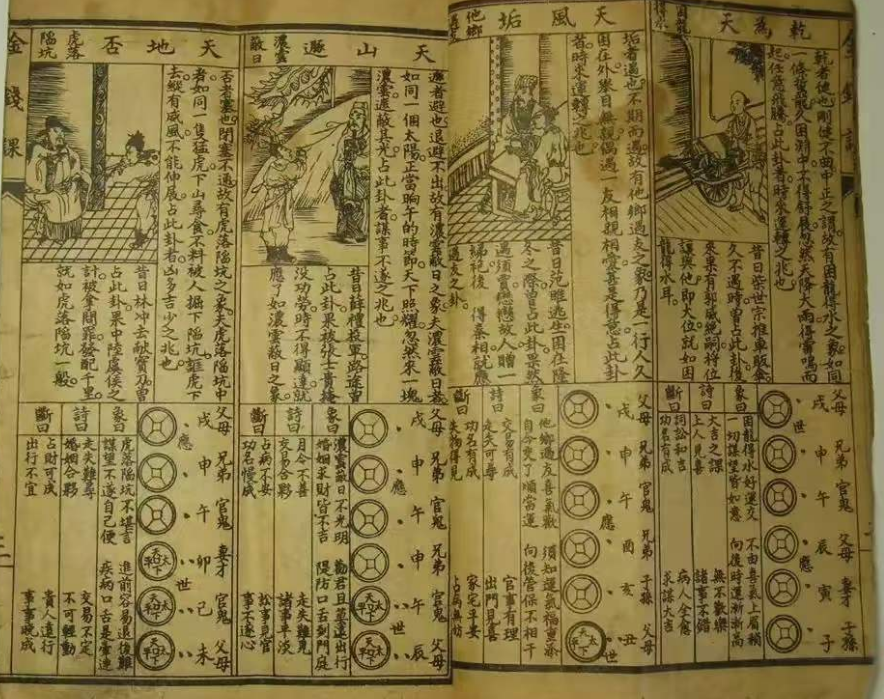 乾為天
困龍得水
乾者健也剛健不曲中正之謂故有困龍得水之象如同
一條蛟龍久困淵中不得舒展忽然天降大雨得雷鳴而
起任意飛騰占此卦者時來運轉之兆也
昔日柴世宗推車販傘
久不遇時曾占此卦後
來果有郭威絕嗣將位
讓與他即大位就如困
龍得水耳
父母 戌 世
兄弟 申
官鬼 午
父母 辰 應
妻才 寅
子孫 子
象曰
困龍得水好運交
不由喜氣上眉稍
一切謀望皆如意
向後時運漸漸高
詩曰
大吉之課
無不歡樂
上人見喜
諸事不錯
斷曰
詞訟和吉
病人全愈
功名有成
求謀大吉
天風垢
他鄉遇友
垢者遇也不期而遇故有他鄉遇友之象乃是一行人久
困在外舉目無親偶遇一友相親相愛喜是得意占此卦
者時來運轉之兆也
昔日范睢逃生困在隆
冬之際曾占此卦果然
遇須賈戀戀故人贈一
綈袍後得秦相就應
遇友之卦
父母 戌
兄弟 申
官鬼 午 應
兄弟 酉
子孫 亥
父母 丑 世
象曰
他鄉遇友喜氣歡
須知運氣福重添
自今交了順當運
向後管保不相干
詩曰
交易有成
官事有理
走失可尋
出門見喜
斷曰
功名有成
家宅平安
失物得見
占病無妨
天山遯
濃雲蔽日
遯者避也退避不出故有濃雲蔽日之象夫濃雲蔽日者
如同一個太陽正當晌午的時節天下照耀忽然來一塊
濃雲遮蔽其光占此卦者謀事不遂之兆也
昔日薛禮投軍路途曾
占此卦果被張士貴掩
沒功勞時不得顯達就
應了如濃雲蔽日之象
父母 戌
兄弟 申 應
官鬼 午
兄弟 申
官鬼 午 世
父母 辰
象曰
濃雲蔽日不光明
勸君且莫遠出行
婚姻求財皆不吉
隄防口舌到門庭
詩曰
月令不善
走失難見
交易合夥
諸事平淡
斷曰
占病不妥
訟事見官
功名慢成
事不遂心
天地否
虎落陷坑
否者塞也閉塞不通故有虎落陷坑之象夫虎落陷坑中
者如同一隻猛虎下山尋食不料被人掘下陷坑誆虎下
去縱有威風不能伸展占此卦者凶多吉少之兆也
昔日林冲去献寶刀曾
占此卦果中陸虞侯之
計被拿問罪發配千里
就如虎落陷坑一般
父母 戌 應
兄弟 申
官鬼 午
妻才 卯 世
官鬼 巳
父母 未
天下太平
象曰
虎落陷坑不堪言
進前容易退後難
謀望不遂自己便
疾病口舌是牽連
詩曰
走失難尋
交易不定
婚姻合夥
不可輕動
斷曰
占財可成
貴人遠行
出行不宜
事事晚成
金錢課